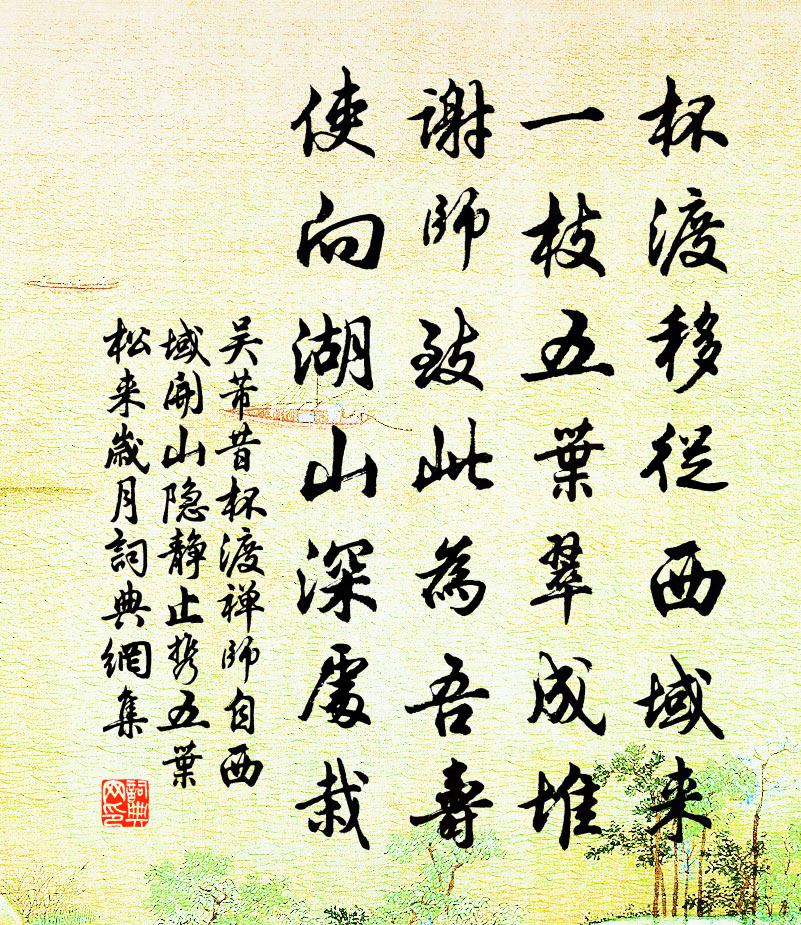 杯渡移從西域来
一枝五葉翠成堆
謝師致此為吾壽
使向湖山深處栽
吴芾昔杯渡禅師自西
域開山隐静止携五葉
松来歲月詞典網集
詞典网印